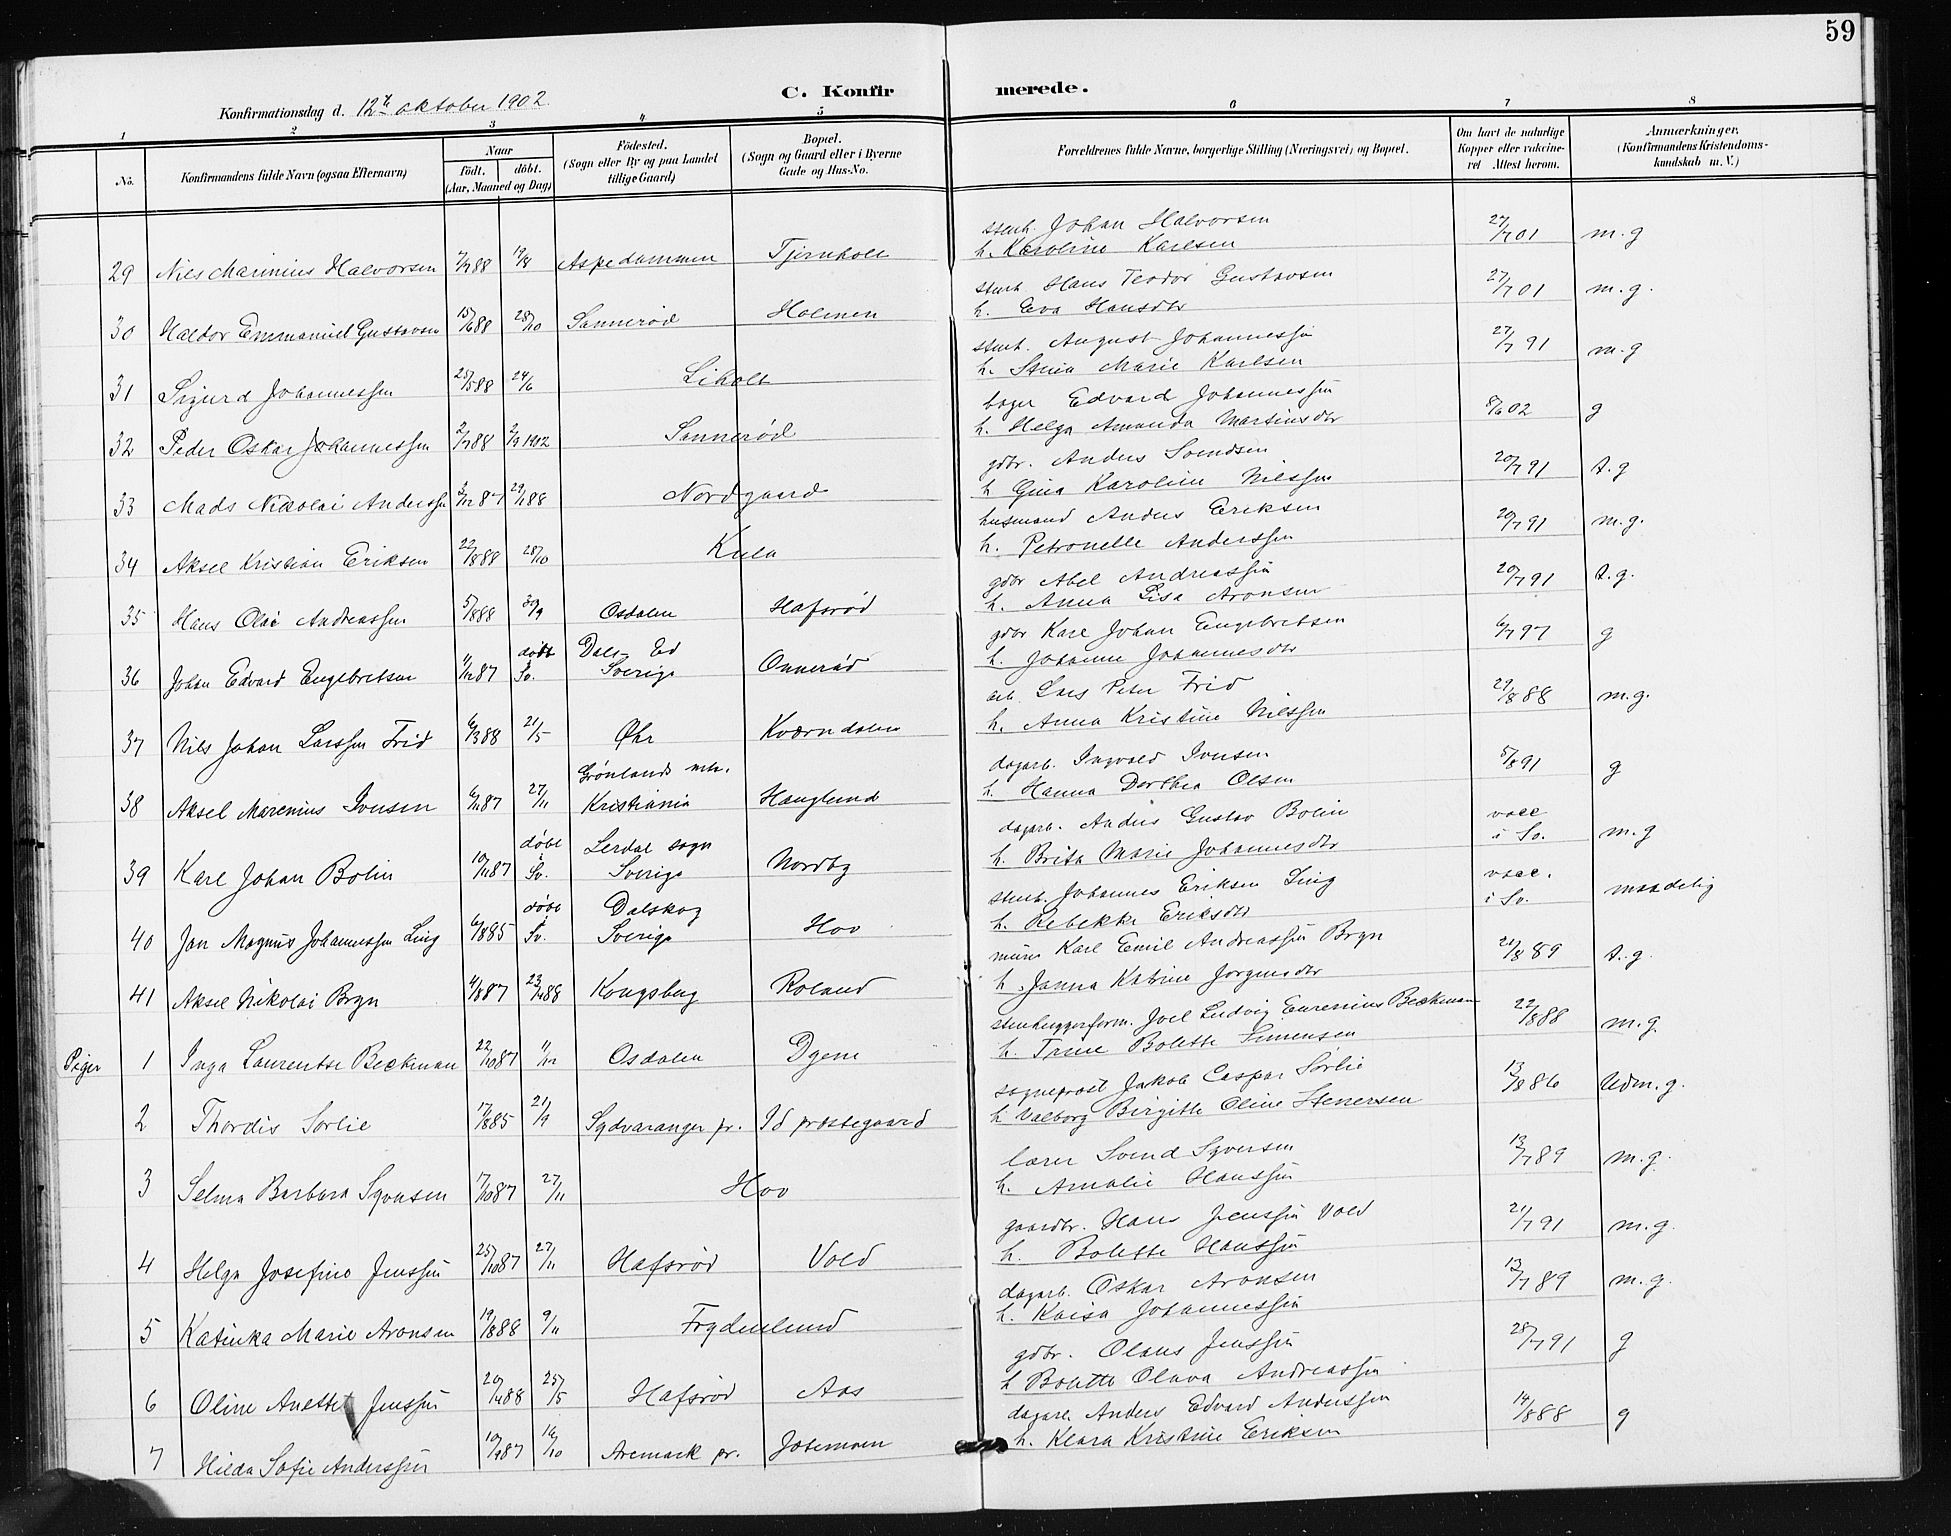 59
C. Konfirmerede.
Konfirmationsdag d. 12te oktober 1902.
1 2 3 4 5 6 7 8
No.
Konfirmandens fulde Navn (ogsaa Efternavn)
Naar
født. døbt.
(Aar, Maaned og Dag)
Fødested.
(Sogn eller By og paa Landet
tillige Gaard)
Bopæl.
(Sogn og Gaard eller i Byerne
Gade og Hus-No.
Forældrenes fulde Navne, borgerlige Stilling (Næringsvei) og Bopæl.
Om havt de naturlige
Kopper eller vaccine-
ret Attest herom.
Anmærkninger.
(Konfirmandens Kristendoms-
kundskab m. V.)
29 Nils Marinius Halvorsen 7/7 88 19/8 Aspedammen Tjernholt stenh. Johan Halvorsen 27/7 01 m.g
h. Karoline Karlsen
30 Haldor Emmanuel Gustavsen 15/6 88 28/10 Sannerød Holmen stenh. Hans Teodor Gustavsen 27/7 01 m.g.
h. Eva Hansdtr
31 Sigurd Johannessen 25/5 88 24/6 Liholt stenh. August Johannessen 27/7 91 m.g
h. Stina Marie Karlsen
32 Peder Oskar Johannessen 2/7 88 2/9 1902 Sannerød bager Edvard Johannessen 8/6 02 g
h. Helga Amanda Martinsdtr
33 Mads Nikolai Anderssen 3/12 87 29/1 88 Nordgaard gdbr. Anders Svendsen 20/7 91 t.g
h Gina Karoline Nilssen
34 Aksel Kristian Eriksen 22/8 88 28/10 Kula husmand Anders Eriksen 20/7 91 m.g.
h. Petronelle Anderssen
35 Hans Olai Andreassen 5/8 88 30/9 Osdalen Hafsrød gdbr Abel Andreassen 20/7 91 t.g.
h. Anna Lisa Aronsen
36 Johan Edvard Engebretsen 11/12 87 døbt i Sv. Dals-Ed Sverige Onnerød gdbr Karl Johan Engebretsen 6/7 97 g
h. Johanne Johannesdtr
37 Nils Johan Larssen Frid 6/3 88 21/5 Øhr Kværndalen arb. Lars Peter Frid 29/8 88 m.g.
h. Anna Kristine Nilssen
38 Aksel Marenius Iversen 6/11 87 27/11 Grønlands mh. Kristiania Hauglund dagarb. Ingvald Iversen 5/8 91 g
h. Hanna Dorthea Olsen
39 Karl Johan Bolin 10/11 87 døbt i Sv. Lerdal sogn Sverige Nordby dagarb. Anders Gustav Bolin vacc. i Sv. m.g
h. Brita Marie Johannesdtr
40 Jan Magnus Johannessen Ling 6/8 85 døbt i Sv. Dalskog Sverige Hov stenh. Johannes Eriksen Ling vacc. i Sv. maadelig
h. Rebekka Eriksdtr
41 Aksel Nikolai Bryn 4/8 87 23/4 88 Kongsberg Roland murer Karl Emil Andreassen Bryn 21/8 89 t.g.
h. Janna Katrine Jørgensdtr
Piger 1 Inga Laurentse Beckman 22/10 87 11/12 Osdalen Dyene stenhuggerform. Joel Ludvig Eurenius Beckman 22/8 88 m.g.
h. Trine Bolette Simensen
2 Thordis Sørlie 17/8 85 21/9 Sydvaranger pr. Id prestegaard sogneprest Jakob Caspar Sørlie 13/8 86 Udm.g.
h Valborg Birgitte Oline Stenersen
3 Selma Barbara Syversen 17/10 87 27/11 Hov lærer Svend Syversen 13/7 89 m.g.
h. Amalie Hanssen
4 Helga Josefine Jenssen 25/10 87 27/11 Hafsrød Vold gaardbr. Hans Jenssen Vold 21/7 91 m.g.
h. Bolette Hanssen
5 Katinka Marie Aronsen 19/8 88 9/11 Frydenlund dagarb. Oskar Aronsen 13/7 89 m.g.
h. Kaisa Johannessen
6 Oline Anette Jenssen 20/4 88 25/5 Hafsrød Aas gdbr. Olaus Jenssen 28/7 91 g
h Bolette Olava Andreassen
7 Hilda Sofie Anderssen 10/9 87 16/10 Aremark pr. Josemoen dagarb. Anders Edvard Anderssen 14/8 88 g
h. Klara Kristine Eriksen